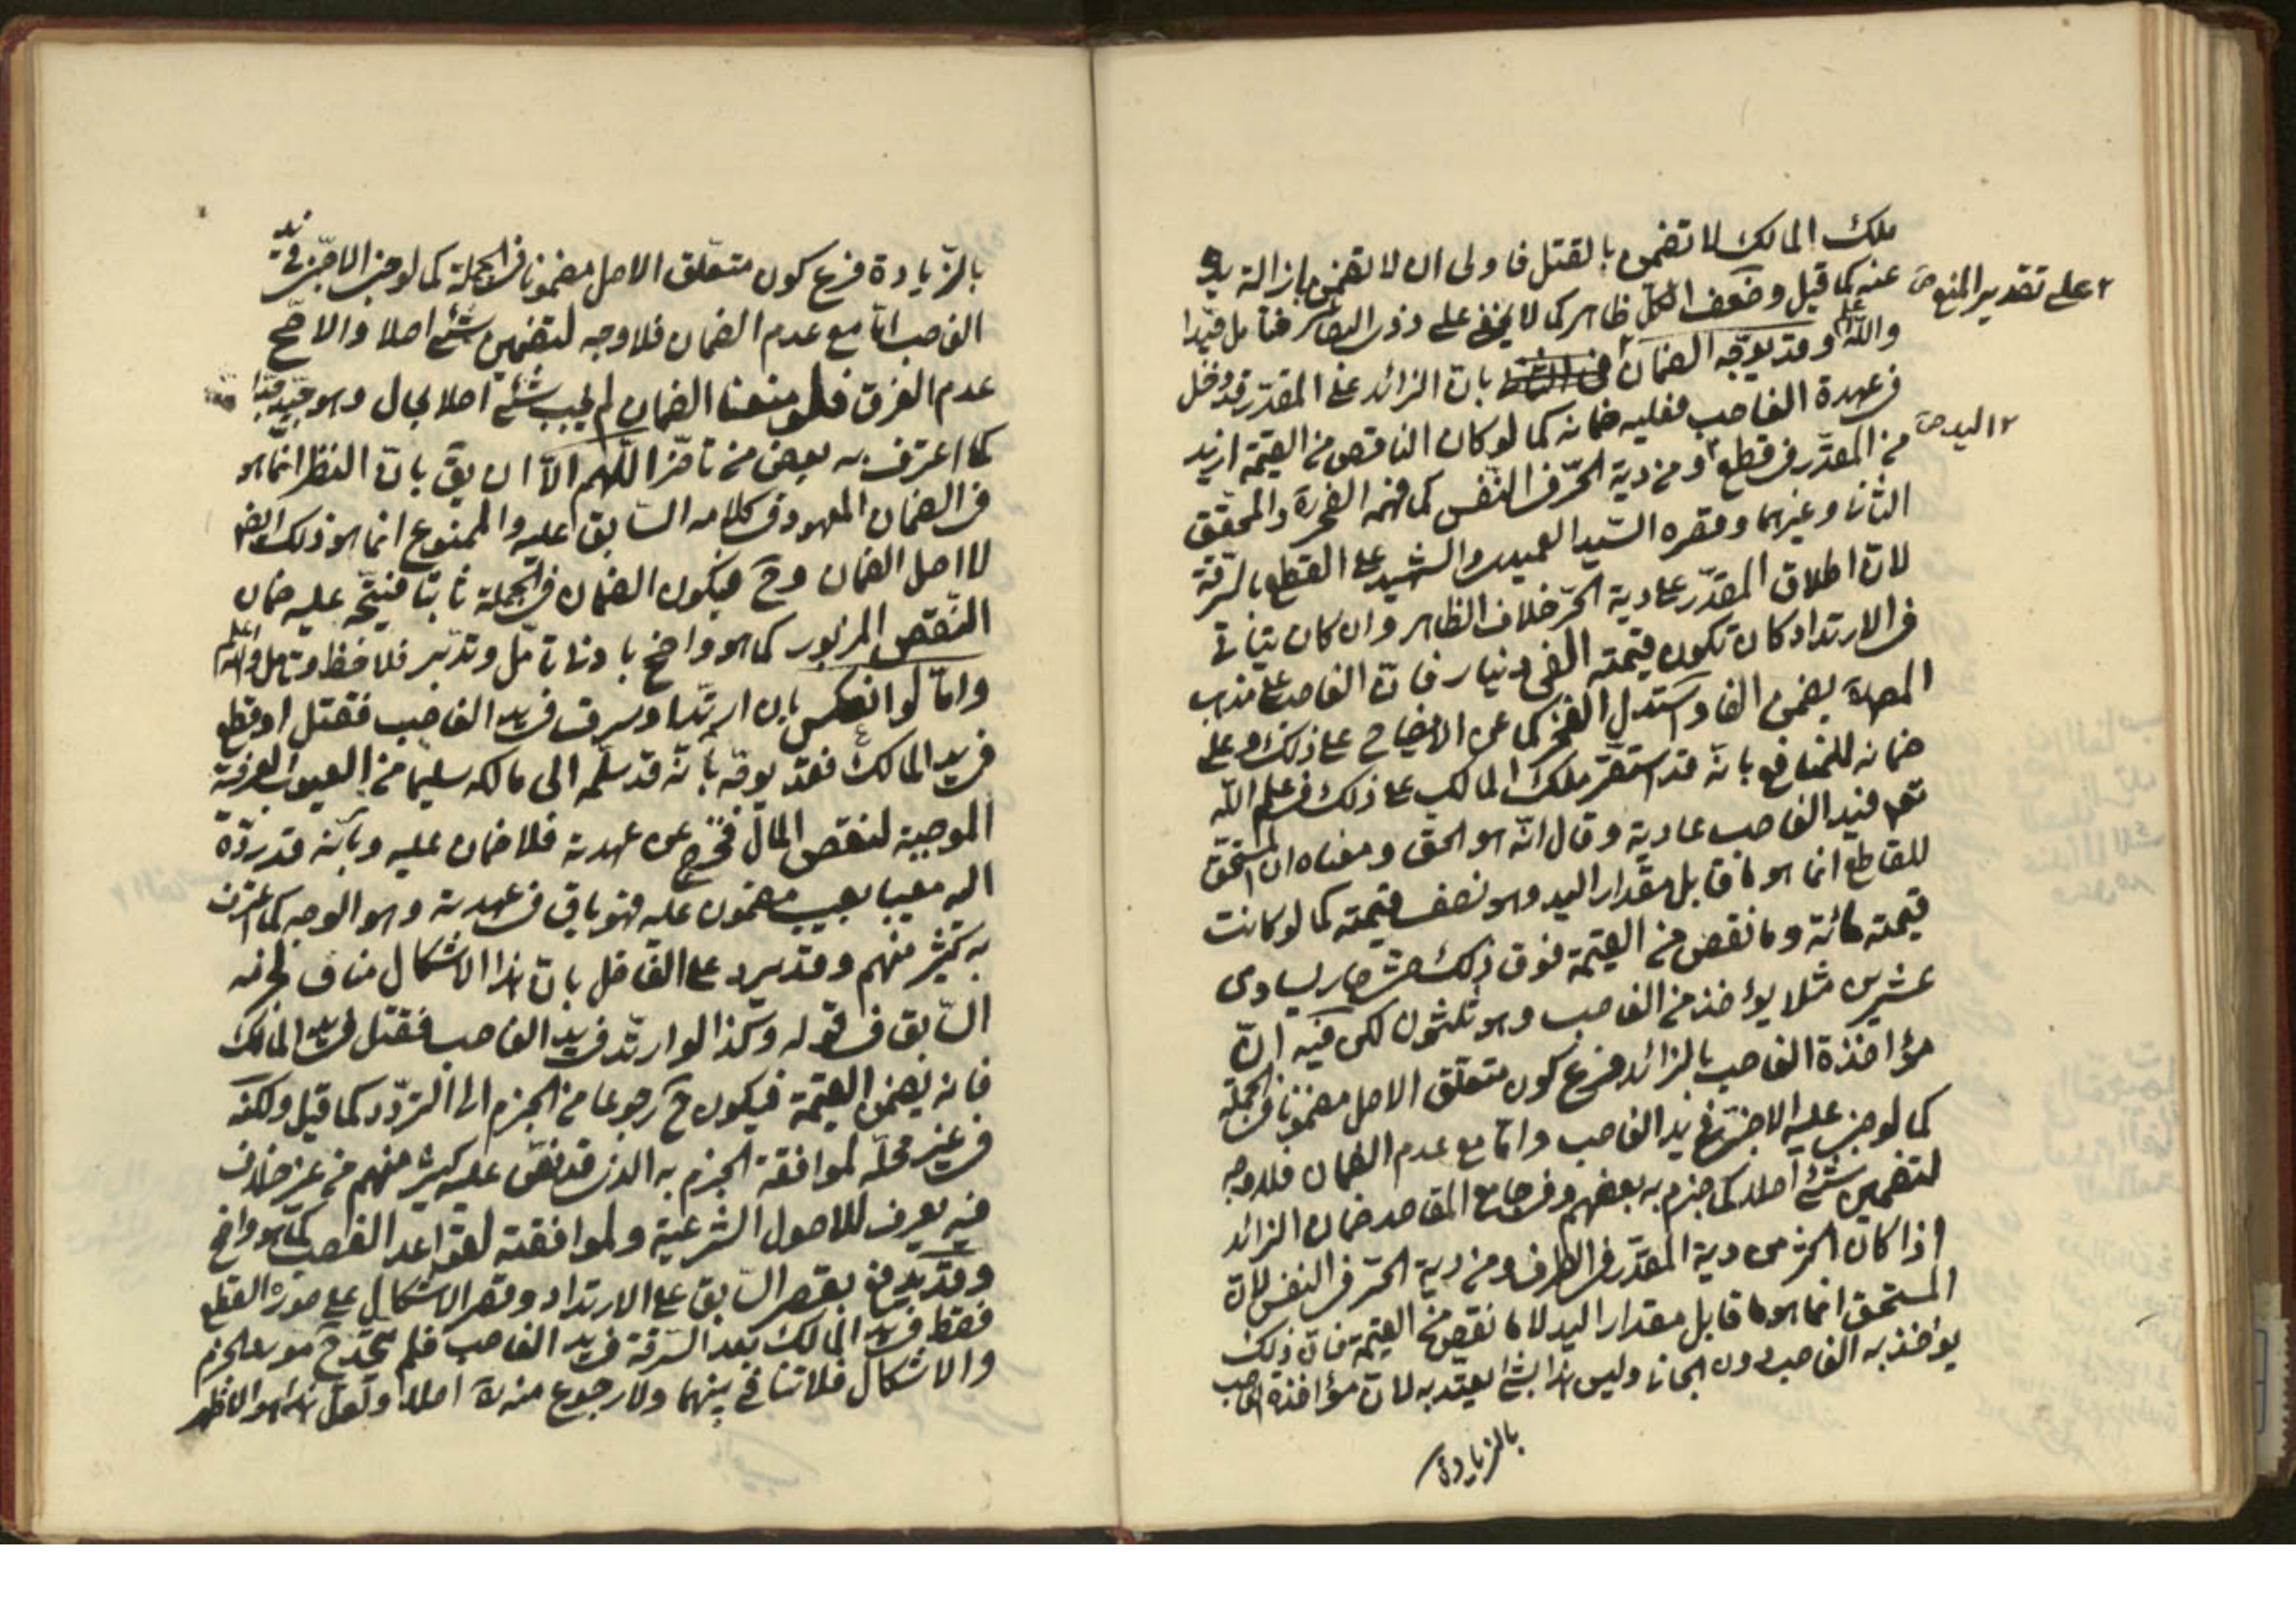 ملك المالك لا تضمن بالقتل فاولى ان لا تضمن بازالة يد
عنه كما قيل وضعف الكل ظاهر كما لا يخفى على ذوى البصائر فتأمل جيّدا
على تقدير المنع صح
والله اعلم وقد يوجّه الضمان بانّ الزائد على المقدّر قد دخل
فى عهدة الغاصب فعليه ضمانه كما لو كان الناقص من القيمة ازيد
من المقدّر فى قطع او من دية الحرّ فى النفس كما فهمه الفخرة والمحقق
اليد صح
الثانى وغيرهما وقصره السّيد العميدى والشهيد على القطع بالسرقة
لانّ اطلاق المقدّر على دية الحرّ خلاف الظاهر وان كان يتأتى
فى الارتداد كان تكون قيمته الفى دينار فانّ الغاصب على مذهب
المصرة يضمن الفا واستدل الفخر كما عن الايضاح على ذلك وعلى
ضمانه للمنافع بانّه قد استقرّ ملك المالك على ذلك فى علم الله
تعالى فيد الغاصب عادية وقال انّه هو الحق ومعناه ان المستحق
للقاطع انما هو ما قابل مقدار اليد وهو نصف قيمته كما لو كانت
قيمته مائة وما نقص من القيمة فوق ذلك حتى صار يساوى
عشرين مثلا يؤخذ من الغاصب وهو ثلثون لكن فيه انّ
مؤاخذة الغاصب بالزائد فرع كون متعلق الاصل مضمونا فى الجملة
كما لو جنى عليه الاجنبى فى يد الغاصب وامّا مع عدم الضمان فلا وجه
لتضمين شئ اصلا كما جزم به بعضهم وفى جامع المقاصد ضمان الزائد
اذا كان اكثر من دية المقدّر فى الطرف ومن دية الحرّ فى النفس لانّ
المستحق انما هو ما قابل مقدار اليد لا ما نقص من القيمة فانّ ذلك
يؤاخذ به الغاصب دون الجانى وليس هذا بشئ يعتدّ به لانّ مؤاخذة الغاصب
بالزيادة
بالزّيادة فرع كون متعلّق الاصل مضمونا فى الجملة كما لو جنى الاجنبى فى يد
الغاصب امّا مع عدم الضمان فلا وجه لتضمين شئ اصلا والاصحّ
عدم الفرق فلو منعنا الضمان لم يجب شئ اصلا بحال وهو جيّد جدّا
كما اعترف به بعض من تأخّر اللّهم الّا ان يقَ بانّ النظر انّما هو
فى الضمان المعهود فى كلامه السّابق عليه والممنوع انما هو ذلك الضمان
لا اصل الضمان وح فيكون الضمان فى الجملة ثابتا فيتّجه عليه ضمان
النّقص المزبور كما هو واضح بادنى تأمّل وتدبّر فلاحظ وتامل والله اعلم
وامّا لو انعكس بان ارتدّ او سرق فى يد الغاصب فقتل او قطع
فى يد المالك فقد يوجّه بأنّه قد سلّمه الى مالكه سليما من العيوب العرفية
الموجبة لنقص المال فخرج عن عهدته فلا ضمان عليه وبأنّه قد ردّه
اليه معيبا بعيب مضمون عليه فهو باق فى عهدته وهو الوجه كما اعترف
به كثير منهم وقد يرد على الفاضل بانّ هذا الاشكال مناف لجزمه
السّابق فى قوله وكذا لو ارتدّ فى يد الغاصب فقتل فى يد المالك
فانه يضمن القيمة فيكون ح رجوعا من الجزم الى التّردّد كما قيل ولكنّه
فى غير محلّه لموافقة الجزم به الذى قد نصّ عليه كثير منهم من غير خلاف
فيه يعرف للاصول الشرعية ولموافقته لقواعد الغصب كما هو واضح
وقد يدفع بقصر السّابق على الارتداد وقصر الاشكال على صورة القطع
فقط فى يد المالك بعد السّرقة فى يد الغاصب فلم يتّحد ح مورد الجزم
والاشكال فلا تنافى بينهما ولا رجوع منه ره اصلا ولعلّ هذا هو الاظهر